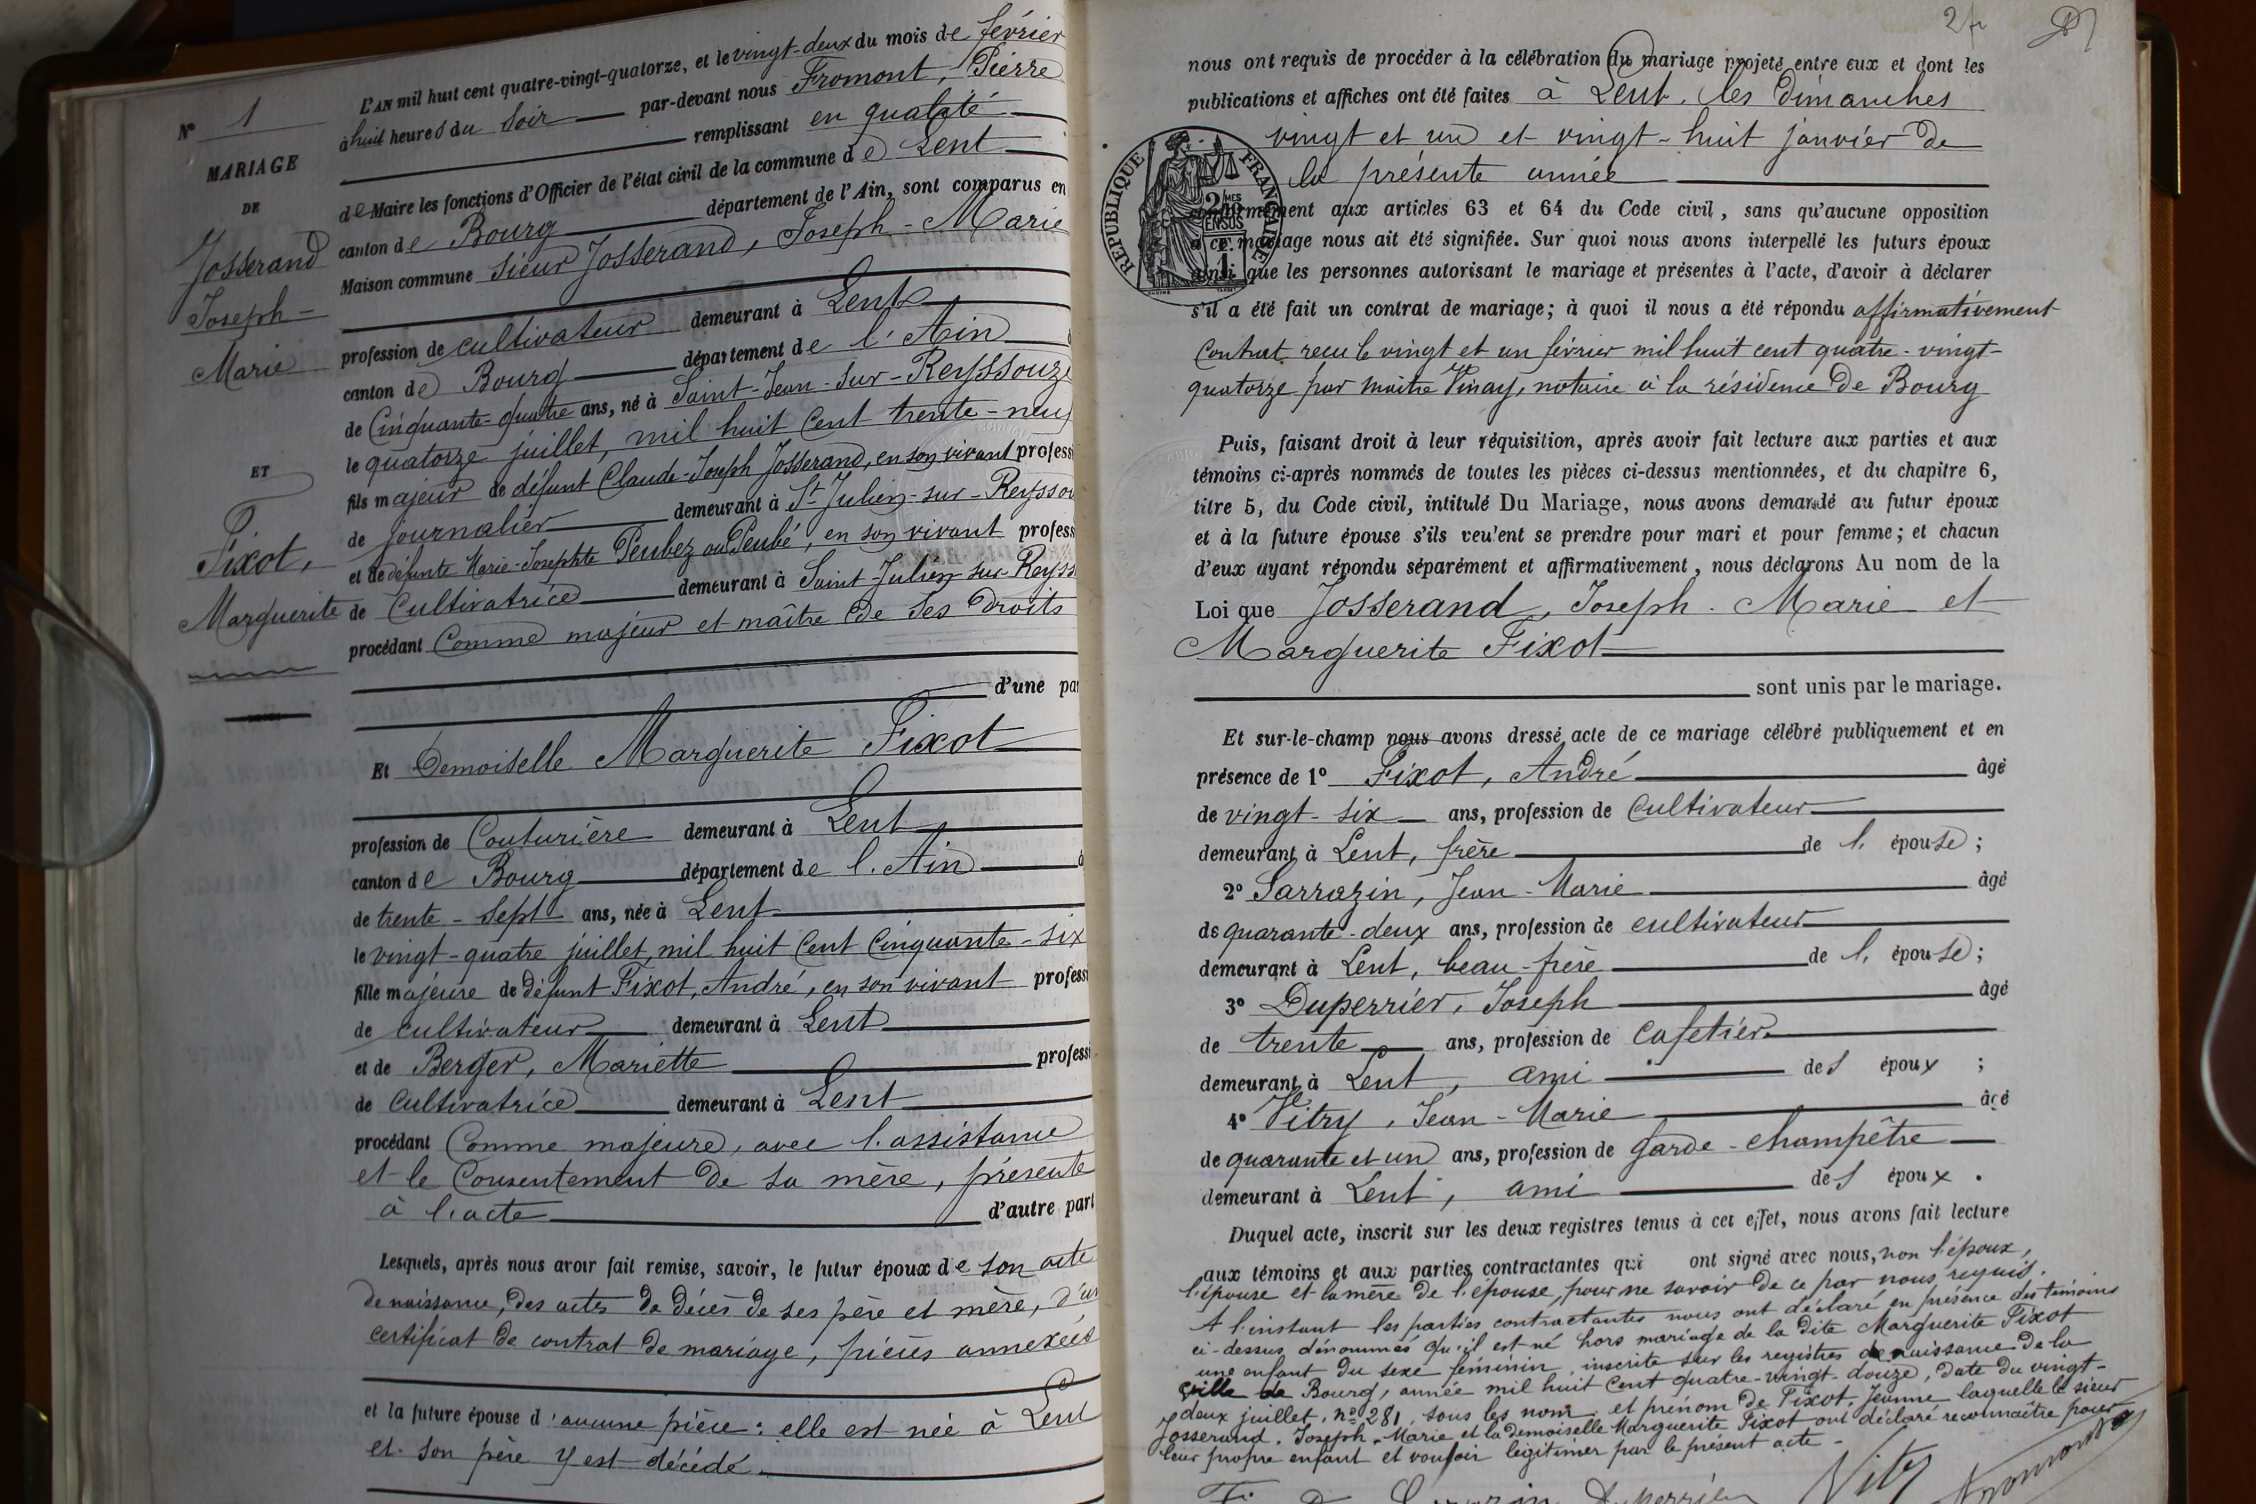 N° 1
MARIAGE
DE
Josserand
Joseph -
Marie
ET
Fixot,
Marguerite
L'AN mil huit cent quatre-vingt-quatorze, et le vingt-deux du mois de février
à huit heures du soir par-devant nous Fromont, Pierre
remplissant en qualité
de Maire les fonctions d'Officier de l'état civil de la commune de Lent
canton de Bourg département de l'Ain, sont comparus en
Maison commune sieur Josserand, Joseph-Marie
profession de cultivateur demeurant à Lent
canton de Bourg département de l'Ain
de Cinquante-quatre ans, né à Saint-Jean-sur-Reyssouze
le quatorze juillet, mil huit cent trente-neuf
fils majeur de défunt Claude-Joseph Josserand, en son vivant profess
de journalier demeurant à St Julien-sur-Reyssou
et de défunte Marie-Josephte Peubez ou Peubé, en son vivant profess
de Cultivatrice demeurant à Saint-Julien-sur-Reyss
procédant Comme majeur et maître de ses droits
d'une par
Et Demoiselle Marguerite Fixot
profession de Couturière demeurant à Lent
canton de Bourg département de l'Ain
de trente-sept ans, née à Lent
le vingt-quatre juillet, mil huit cent cinquante-six
fille majeure de défunt Fixot, André, en son vivant profess
de cultivateur demeurant à Lent
et de Berger, Mariette professi
de cultivatrice demeurant à Lent
procédant Comme majeure, avec l'assistance
et le Consentement de sa mère, présente
à l'acte d'autre part
Lesquels, après nous avoir fait remise, savoir, le futur époux de son acte
de naissance, des actes de décès de ses père et mère, d'un
certificat de contrat de mariage, pièces annexées
et la future épouse d'aucune pièce : elle est née à Lent
et son père y est décédé.
2 fr
nous ont requis de procéder à la célébration du mariage projeté entre eux et dont les
publications et affiches ont été faites à Lent, les Dimanches
vingt et un et vingt-huit janvier de
la présente année
RÉPUBLIQUE FRANÇAISE
2/10MES EN SUS
1F.
conformément aux articles 63 et 64 du Code civil, sans qu'aucune opposition
à ce mariage nous ait été signifiée. Sur quoi nous avons interpellé les futurs époux
ainsi que les personnes autorisant le mariage et présentes à l'acte, d'avoir à déclarer
s'il a été fait un contrat de mariage; à quoi il nous a été répondu affirmativement
Contrat recu le vingt et un février mil huit cent quatre-vingt-
quatorze par maître Vinay, notaire à la résidence de Bourg
Puis, faisant droit à leur réquisition, après avoir fait lecture aux parties et aux
témoins ci-après nommés de toutes les pièces ci-dessus mentionnées, et du chapitre 6,
titre 5, du Code civil, intitulé Du Mariage, nous avons demandé au futur époux
et à la future épouse s'ils veulent se prendre pour mari et pour femme; et chacun
d'eux ayant répondu séparément et affirmativement, nous déclarons Au nom de la
Loi que Josserand, Joseph-Marie et
Marguerite Fixot
sont unis par le mariage.
Et sur-le-champ nous avons dressé acte de ce mariage célébré publiquement et en
présence de 1° Fixot, André âgé
de vingt-six ans, profession de cultivateur
demeurant à Lent, frère de l'épouse;
2° Sarrazin, Jean-Marie âgé
de quarante-deux ans, profession de cultivateur
demeurant à Lent, beau-frère de l'épouse;
3° Duperrier, Joseph âgé
de trente ans, profession de cafetier
demeurant à Lent, ami des époux;
4° Vitry, Jean-Marie âgé
de quarante et un ans, profession de garde-champêtre
demeurant à Lent, ami des époux.
Duquel acte, inscrit sur les deux registres tenus à cet effet, nous avons fait lecture
aux témoins et aux parties contractantes qui ont signé avec nous, non l'époux,
l'épouse et la mère de l'épouse, pour ne savoir de ce par nous requis.
A l'instant les parties contractantes nous ont déclaré en présence des témoins
ci-dessus dénommés qu'il est né hors mariage de la dite Marguerite Fixot
une enfant du sexe féminin inscrite sur les registres de naissance de la
ville de Bourg, année mil huit cent quatre-vingt-douze, date du vingt-
deux juillet, no 281, sous les nom et prénom de Fixot, Jeanne laquelle le sieur
Josserand, Joseph-Marie et la demoiselle Marguerite Fixot ont déclaré reconnaître pour
leur propre enfant et vouloir légitimer par le présent acte -
Sarrazin Duperrier Vitry Fromont